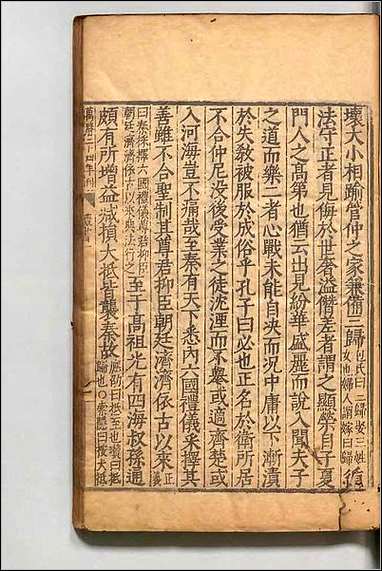 壞大小相踰管仲之家兼備三歸包氏曰三歸娶三姓女也婦人謂嫁曰歸循
法守正者見侮於世奢溢僭差者謂之顯榮自子夏
門人之高弟也猶云出見紛華盛麗而說入聞夫子
之道而樂二者心戰未能自決而況中庸以下漸漬
於失敎被服於成俗乎孔子曰必也正名於衛所居
不合仲尼沒後受業之徒沈湮而不舉或適齊楚或
入河海豈不痛哉至秦有天下悉內六國禮儀采擇其
善雖不合聖制其尊君抑臣朝廷濟濟依古以來
至于高祖光有四海叔孫通
頗有所增益減損大抵皆襲秦故